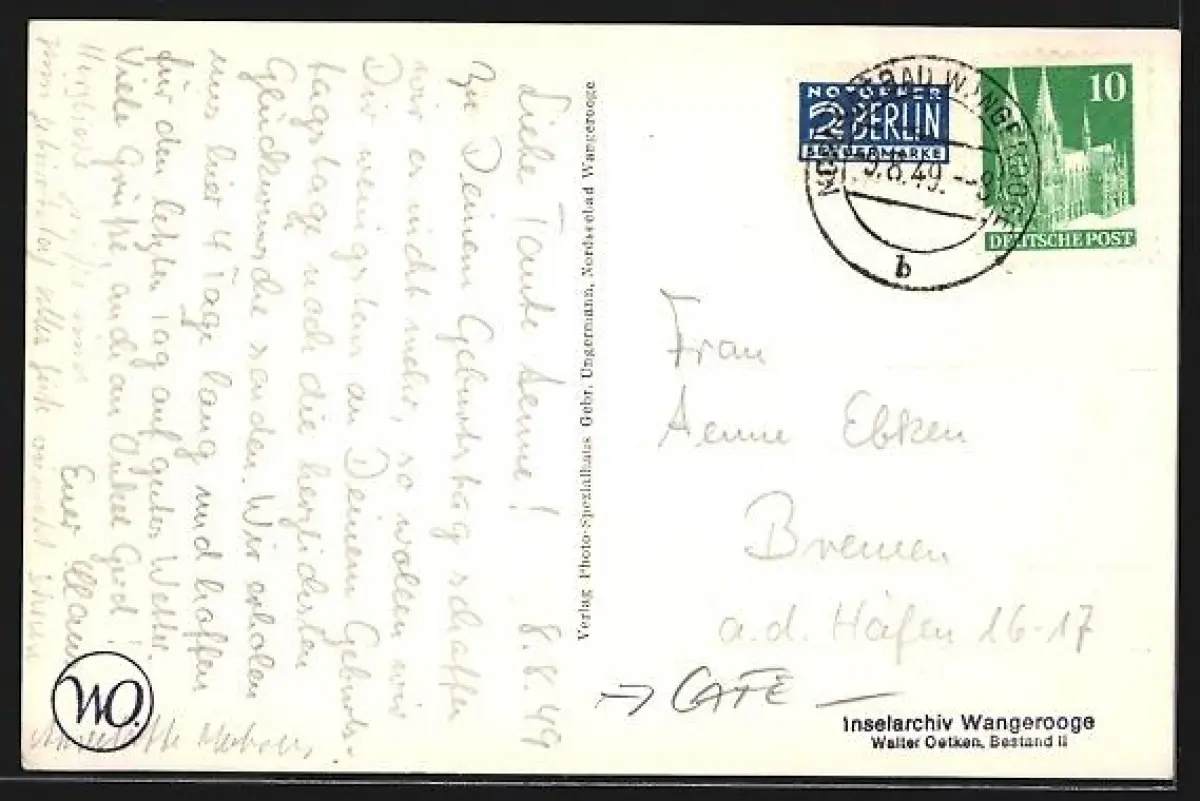 Liebe Tante Aenne! 8.8.49
Zu Deinem Geburtstag schaffen
wir es nicht mehr, so wollen wir
Dir wenigstens an Deinem Geburts-
tagstage noch die herzlichsten
Glückwünsche senden. Wir erholen
uns hier 4 Tage lang und hoffen
für den letzten Tag auf gutes Wetter.
Viele Grüße, auch an Onkel Gerd!
Euer
zum Geburtstag alles Gute wünscht Ihnen
Verlag Photo-Spezialhaus Gebr. Ungermann, Nordseebad Wangerooge
NOTOPFER
2 BERLIN
STEUERMARKE
NORDSEEBAD WANGEROOGE
9.8.49.
b
10
DEUTSCHE POST
Frau
Aenne Ebken
Bremen
a.d. Häfen 16-17
→ CAFE —
WO.
Inselarchiv Wangerooge
Walter Oetken, Bestand II